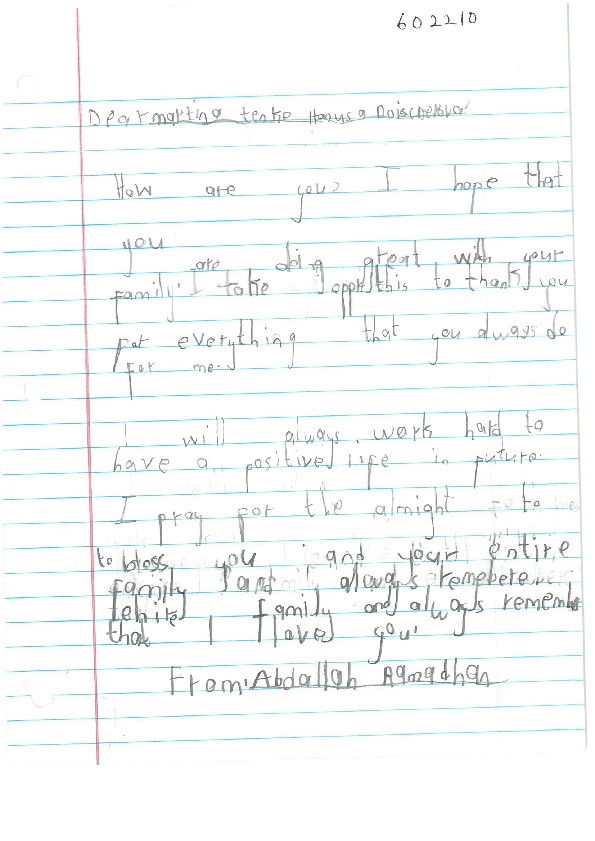 602210
Dear
How are you? I hope that
you
are doing great with your
family. I take this to thank you
For everything that you always do
For me.
I will always work hard to
have a positive life in future.
I pray for the almight to
to bless you and your entire
family and always remebere
family and always remembe
that I love you.
From: Abdallah Ramadhan